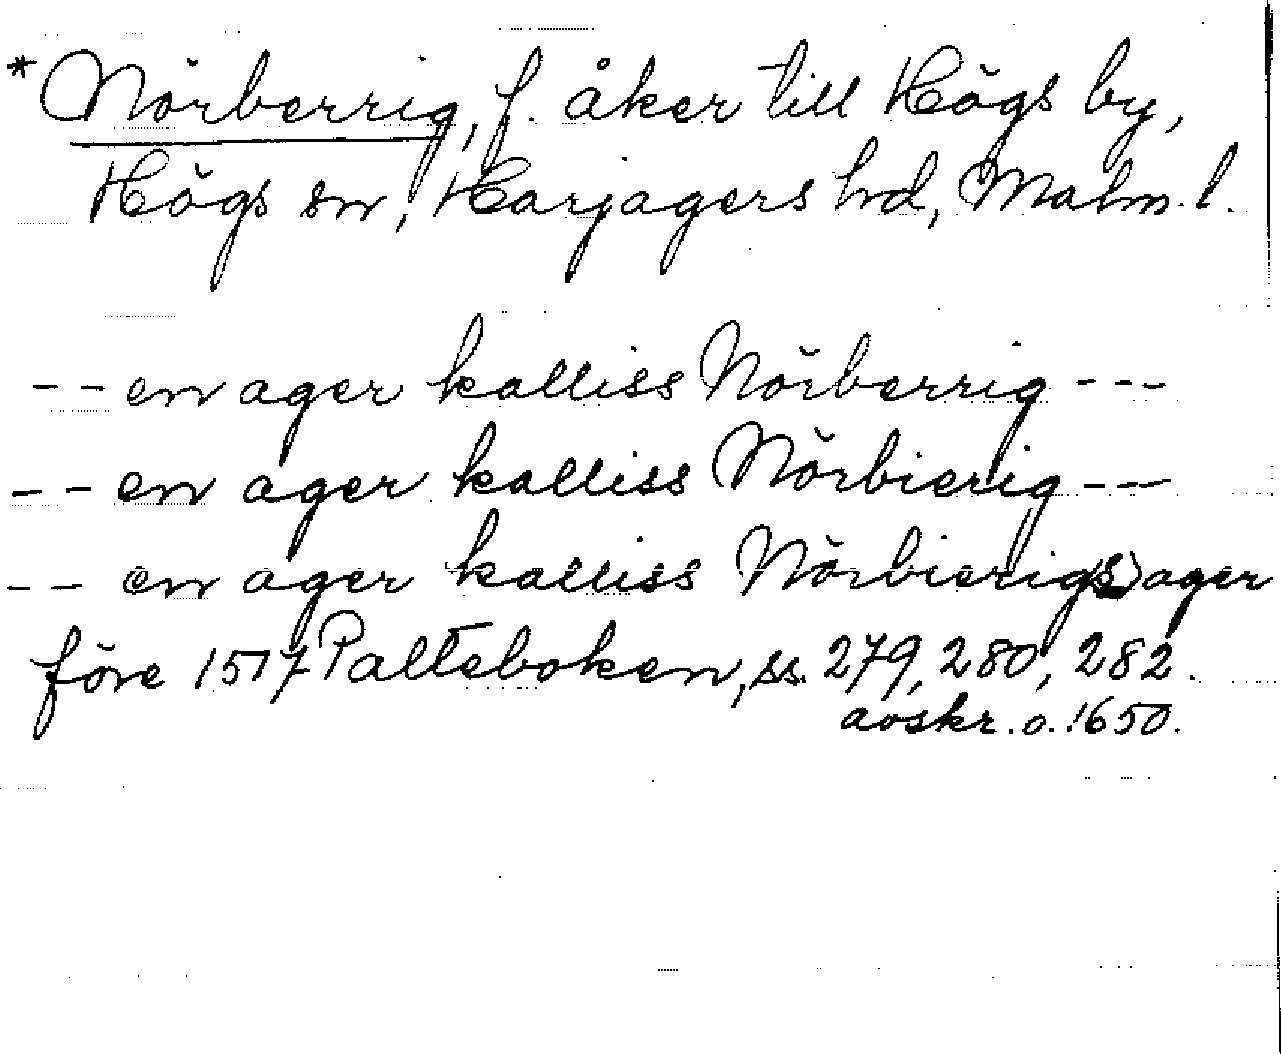 *Nörberrig, f. åker till Högs by,
Högs sn, Harjagers hd, Malm. l.
-- en ager kalliss Nörberrig ---
-- en ager kalliss Nörbierig ---
-- en ager kalliss Nörbierig(s)ager
före 1517 Palteboken, ss. 279, 280, 282.
avskr. o. 1650.